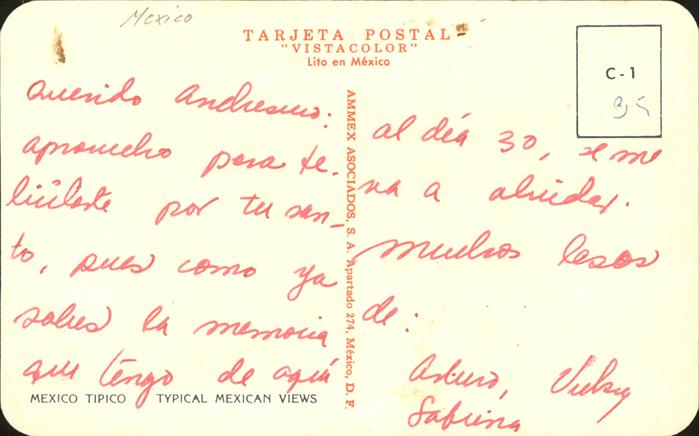 Mexico
TARJETA POSTAL
"VISTACOLOR"
Lito en México
C-1
Querido Andresino:
aprovecho para fe-
licitarte por tu san-
to, pues como ya
sabes la memoria
que tengo de aquí
al día 30, se me
va a olvidar.
Muchos besos
de:
Arturo, Vicky
Sabrina
AMMEX ASOCIADOS, S. A. Apartado 274, México, D. F.
MEXICO TIPICO TYPICAL MEXICAN VIEWS